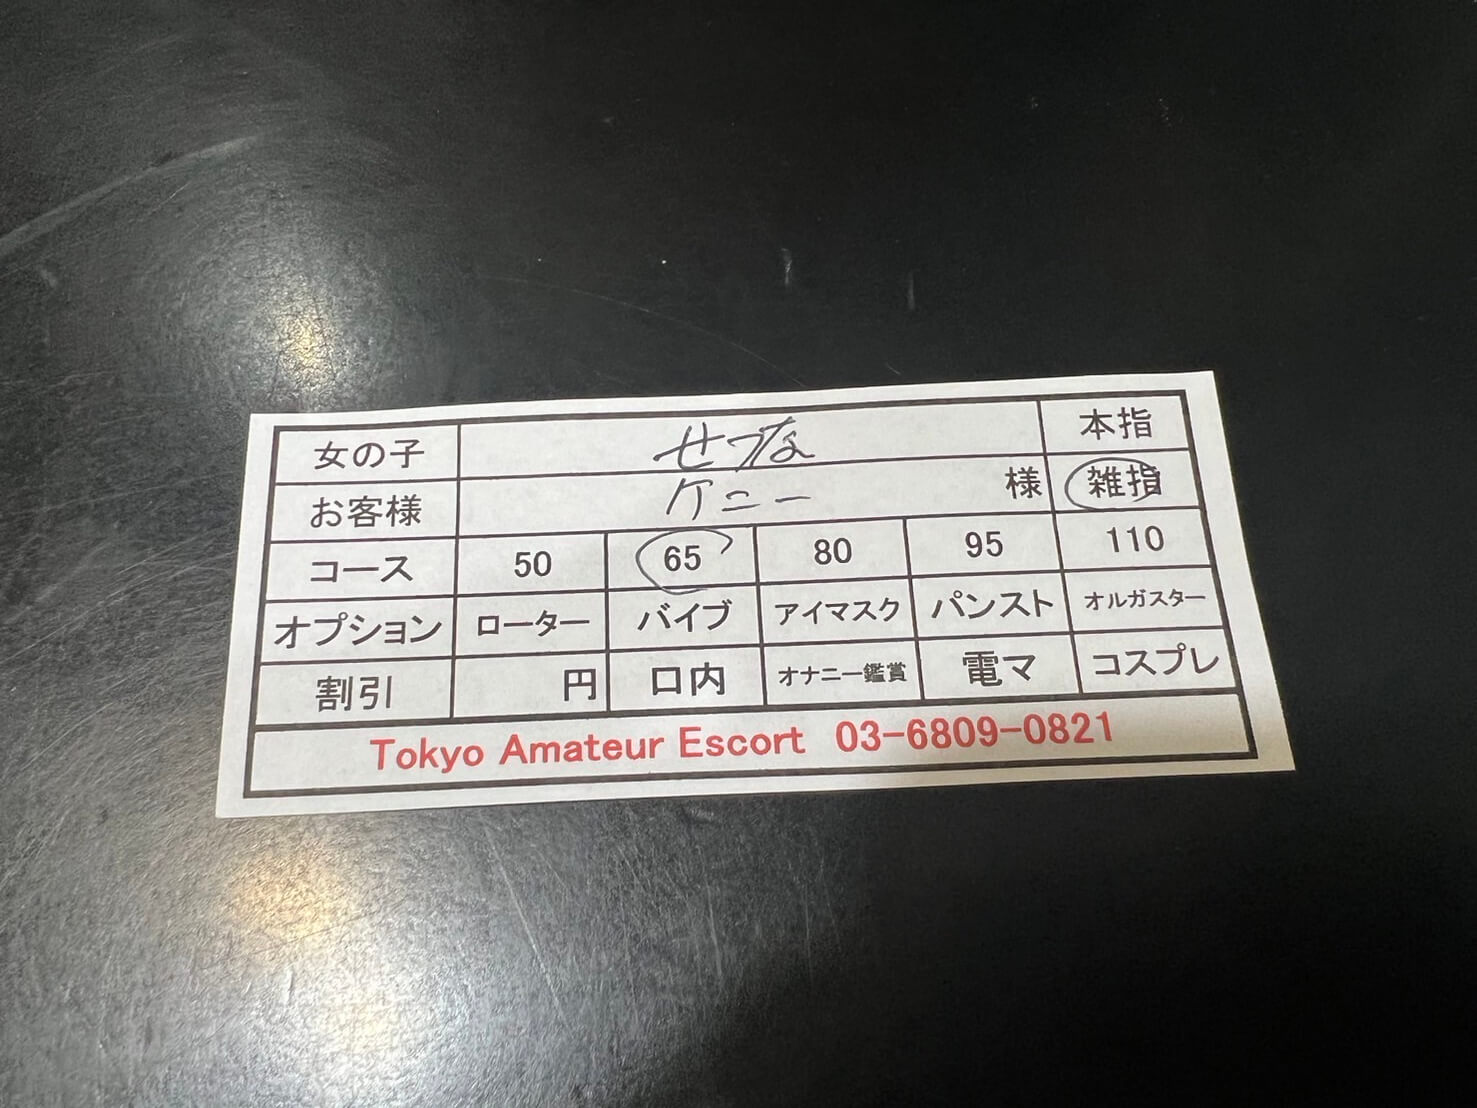 女の子 せつな 本指
お客様 ケニー 様 雑指
コース 50 65 80 95 110
オプション ローター バイブ アイマスク パンスト オルガスター
割引 円 口内 オナニー鑑賞 電マ コスプレ
Tokyo Amateur Escort 03-6809-0821